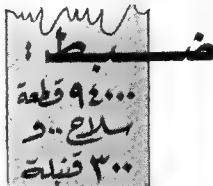 ضبط :
٩٤٠٠٠ قطعة
سلاح .. و
٣٠٠ قنبلة